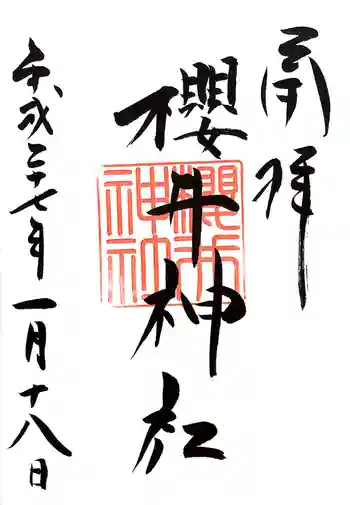 奉拝
櫻井神社
平成二十七年一月十八日